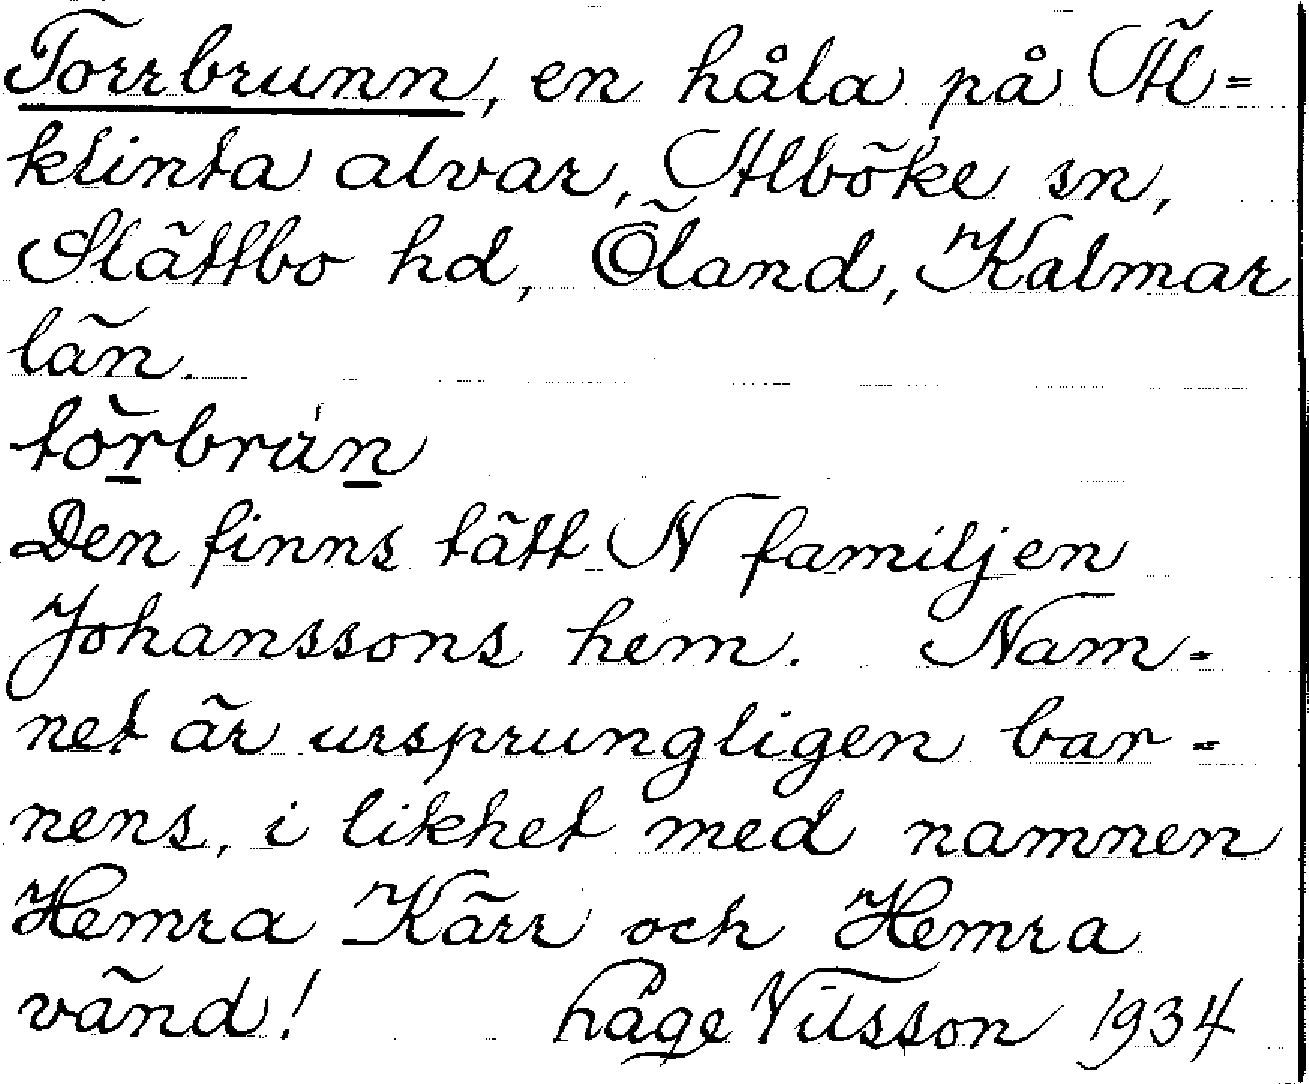 Torrbrunn, en håla på Äl-
klinta alvar, Alböke sn,
Slättbo hd, Öland, Kalmar
län.
tòrbrùn
Den finns tätt N familjen
Johanssons hem. Nam-
net är ursprungligen bar-
nens, i likhet med namnen
Hemra Kärr och Hemra
vänd! Håge Nilsson 1934